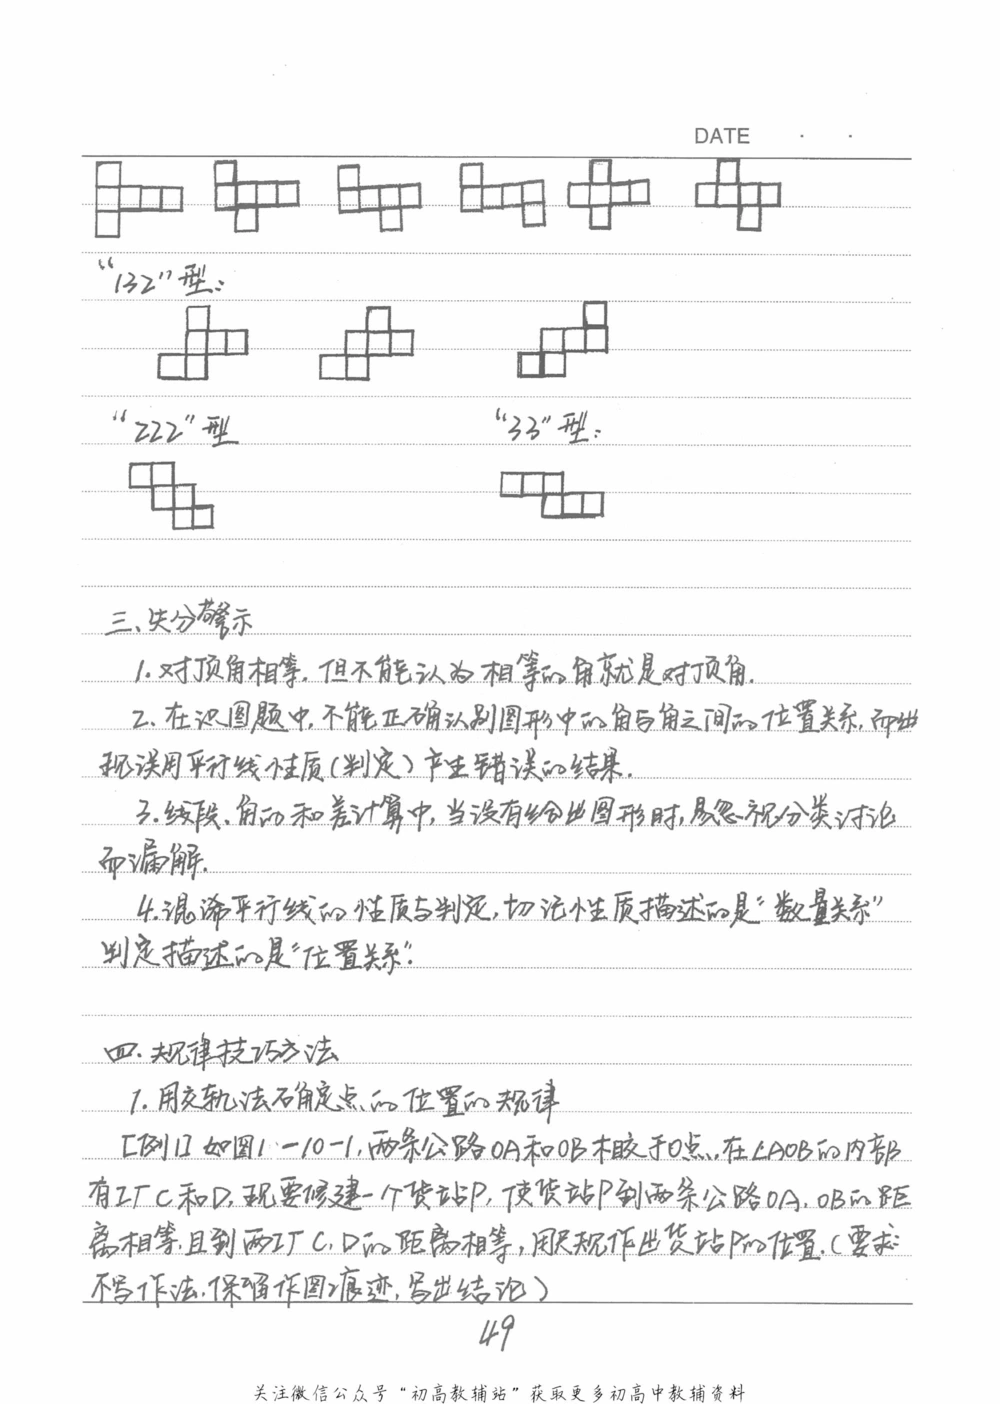 DATE · ·
“132”型:
“222”型 “33”型:
三、失分警示
1.对顶角相等,但不能认为相等的角就是对顶角.
2.在识图题中,不能正确认别图形中的角与角之间的位置关系,而出
现误用平行线性质(判定)产生错误的结果.
3.线段、角的和差计算中,当没有给出图形时,易忽视分类讨论
而漏解.
4.混淆平行线的性质与判定,切记性质描述的是“数量关系”
判定描述的是“位置关系”.
四.规律技巧方法
1.用交轨法确定点的位置的规律
[例1]如图1-10-1,两条公路OA和OB相交于O点,在∠AOB的内部
有工厂C和D,现要修建一个货站P,使货站P到两条公路OA、OB的距
离相等,且到两工厂C,D的距离相等,用尺规作出货站P的位置.(要求:
不写作法,保留作图痕迹,写出结论)
49
关注微信公众号“初高教辅站”获取更多初高中教辅资料